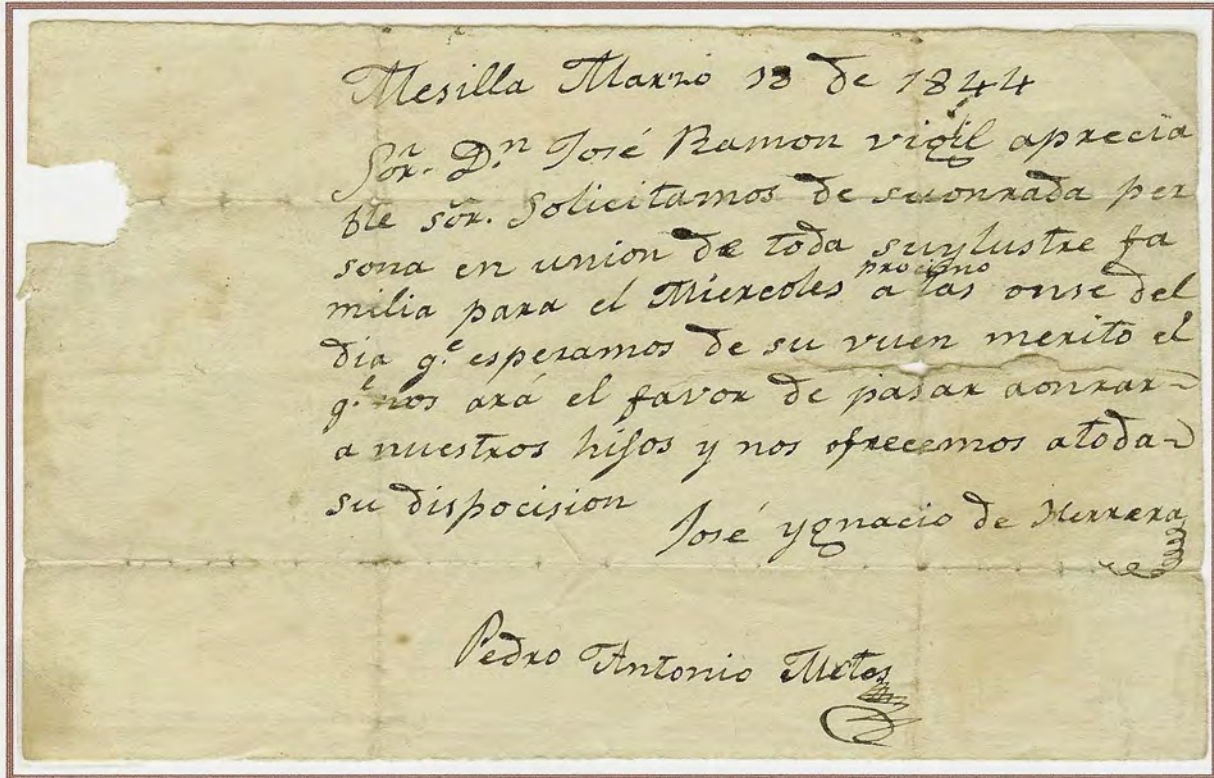 Mesilla Marzo 18 de 1844
Sor. Dn José Ramon vigil aprecia
ble sor. Solicitamos de suonrada per
sona en union de toda suylustre fa
milia para el Miercoles procsimo a las onse del
dia qe. esperamos de su vuen merito el
qe. nos ará el favor de pasar aonrar-
a nuestros hijos y nos ofrecemos atoda-
su dispocision
José ygnacio de Herrera
Pedro Antonio